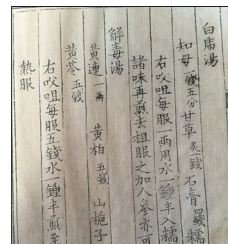 白虎湯
知母五分甘草炙錢石膏糯
右㕮咀每服一兩用水鍾半入糯
諸味再煎去粗服之加人參亦可
解毒湯
黃連一兩 黃柏五錢 山梔子
黃芩五錢
右㕮咀每服五錢水一鍾半煎至
熱服